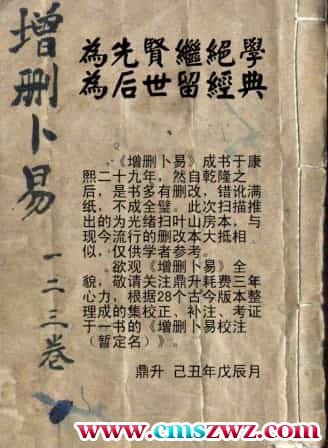 增删卜易
一二三卷
為先賢繼絕學
為后世留經典
《增删卜易》成书于康
熙二十九年，然自乾隆之
后，是书多有删改，错讹满
纸，不成全璧。此次扫描推
出的为光绪扫叶山房本，与
现今流行的删改本大抵相
似，仅供学者参考。
欲观《增删卜易》全
貌，敬请关注鼎升耗费三年
心力，根据28个古今版本整
理成的集校正、补注、考证
于一书的《增删卜易校注
（暂定名）》。
鼎升 己丑年戊辰月
www.cmszwz.com